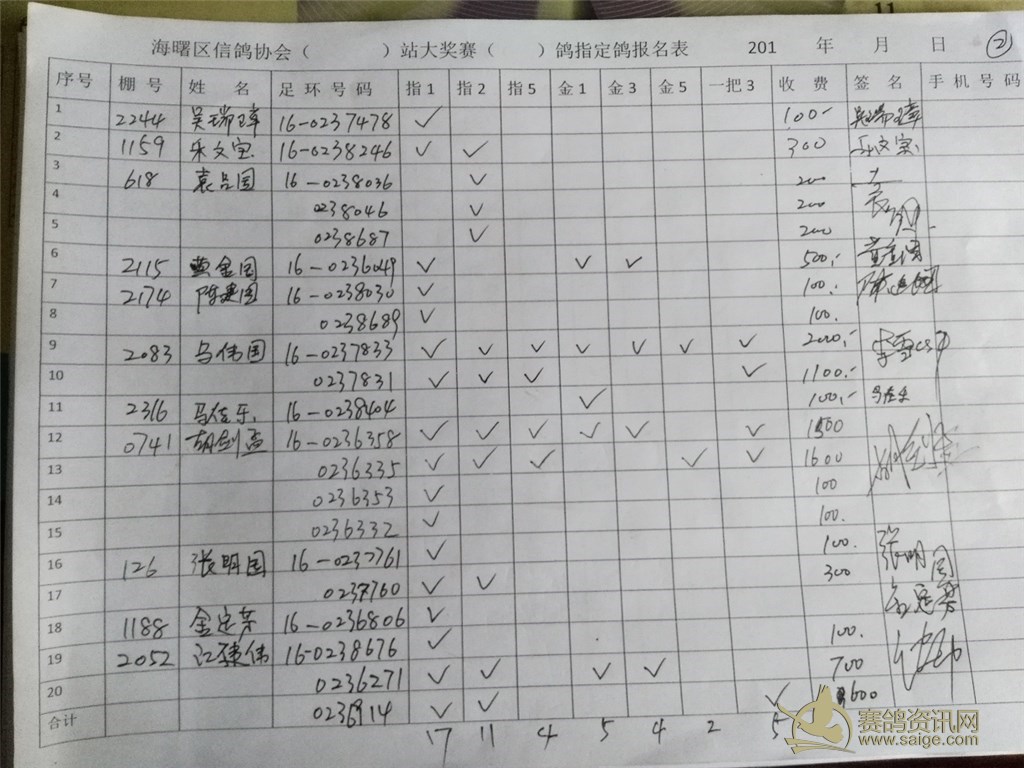 11
海曙区信鸽协会（ ）站大奖赛（ ）鸽指定鸽报名表 201 年 月 日 ②
序号 棚号 姓名 足环号码 指1 指2 指5 金1 金3 金5 一把3 收费 签名 手机号码
1 2244 吴瑞璋 16-0237478 ✓ 100- 吴瑞璋
2 1159 乐文宝 16-0238246 ✓ ✓ 300 乐文宝
3 618 袁吕国 16-0238036 ✓ 200
4 0238046 ✓ 200
5 0238687 ✓ 200
6 2115 黄金国 16-0236049 ✓ ✓ ✓ 500.- 黄金国
7 2174 陈建国 16-0238030 ✓ 100.
8 0238689 ✓ 100.
9 2083 马伟国 16-0237833 ✓ ✓ ✓ ✓ ✓ ✓ ✓ 2000.-
10 0237831 ✓ ✓ ✓ ✓ 1100.-
11 2316 马佳乐 16-0238404 ✓ 100.-
12 0741 胡剑孟 16-0236358 ✓ ✓ ✓ ✓ ✓ ✓
13 0236335 ✓ ✓ ✓ ✓ ✓ 1600
14 0236353 ✓ 100
15 0236332 ✓ 100.
16 126 张明国 16-0237761 ✓ 100. 张明国
17 0237760 ✓ ✓ 300
18 1188 金定芳 16-0236806 ✓ 100.
19 2052 江建伟 16-0238676 ✓
20 0236271 ✓ ✓ ✓ ✓ 700
合计 ✓ ✓ ✓ 600
17 11 4 5 4 2 5
赛鸽资讯网
www.saige.com